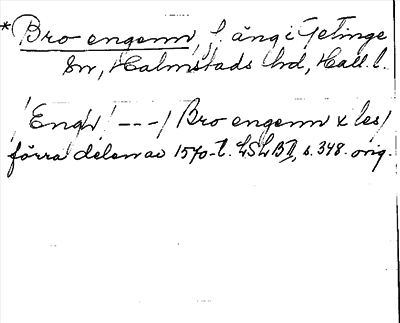 *Bro engenn, f. äng i Getinge
sn, Halmstads hd, Hall. l.
/Engh/ ---/ Bro engenn x les/
förra delen av 1570-t. LSLB II, s. 348. orig.